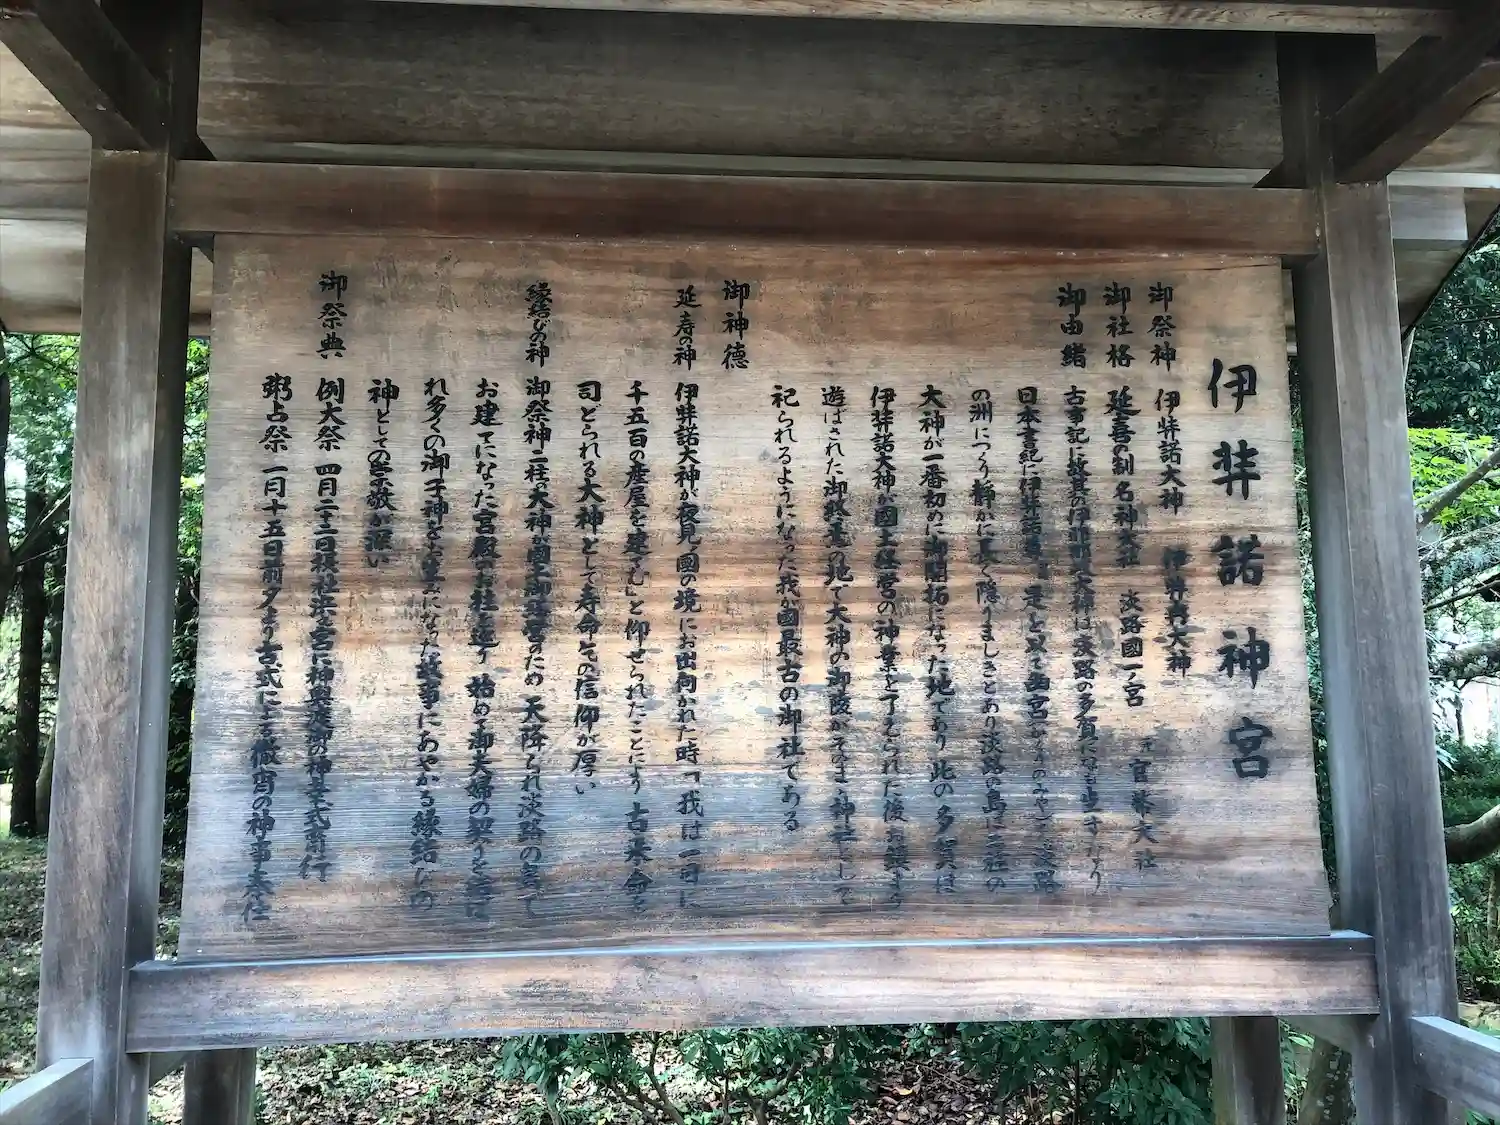 伊弉諾神宮
御祭神 伊弉諾大神 伊弉冉大神
御社格 延喜の制 名神大社 淡路國一ノ宮 元 官幣大社
御由緒 古事記に故其の伊耶那岐大神は淡路の多賀になも坐すなり
日本書紀に伊弉諾尊 是を以て幽宮を淡路
の洲につくり 静かに長く隠りましきとあり淡路島に三座の
大神が一番初めに御開拓になった地であり 此の多賀は
伊弉諾大神が國土経営の神業を了えられた後お過し
遊ばされた御終焉の地で大神の御陵がそのまま神社として
祀られるようになった我が國最古の御社である
御神徳
延寿の神 伊弉諾大神が夜見ノ國の境にお出向かれた時「我は一日に
千五百の産屋を建てむ」と仰せられたことにより 古来命を
司どられる大神として寿命とその信仰が厚い
縁結びの神 御祭神二柱の大神が國土御経営のため 天降られ淡路の島で
お建てになった宮殿のお柱を巡り 始めて御夫婦の契りを結ば
れ多くの御子神をお生みになった故事にあやかる縁結びの
神としての崇敬が深い
御祭典 例大祭 四月二十二日 神輿渡御の神幸式斎行
粥占祭 一月十五日前夕より古式による徹宵の神事奉仕